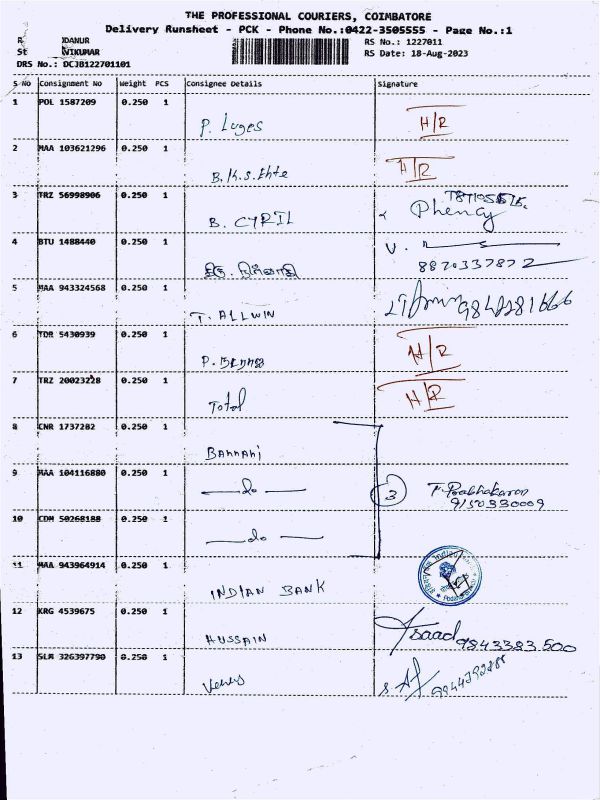 THE PROFESSIONAL COURIERS, COIMBATORE
Delivery Runsheet - PCK - Phone No.:0422-3505555 - Page No.:1
R DANUR
RS No.: 1227011
St VIKUMAR
RS Date: 18-Aug-2023
DRS No.: DCJB122701101
S No Consignment No Weight PCS Consignee Details Signature
1 POL 1587209 0.250 1
P. Luges H/R
2 MAA 103621296 0.250 1
B.K.S. H/R
3 TRZ 56998906 0.250 1
B. CYRIL Phency
4 BTU 1488440 0.250 1
V.
8870337872
5 MAA 943324568 0.250 1
T. ALLWIN
6 TDR 5430939 0.250 1
P. H/R
7 TRZ 20023228 0.250 1
Total H/R
8 CNR 1737282 0.250 1
Bannari
9 MAA 104116880 0.250 1
—do— 3 T. Prabhakaran
9150330009
10 CDM 50268188 0.250 1
—do—
11 MAA 943964914 0.250 1
INDIAN BANK
12 KRG 4539675 0.250 1
HUSSAIN saad 9843383500
13 SLM 326397790 0.250 1